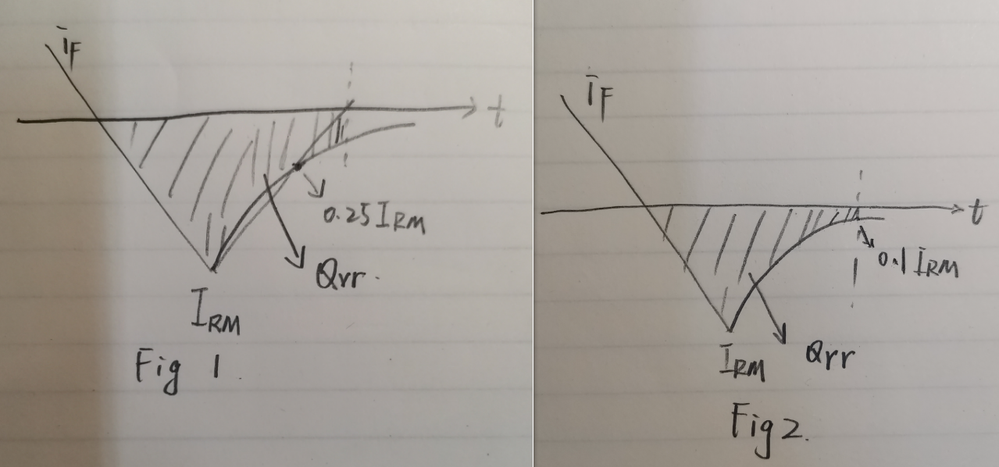 iF
t
0.25 IRM
Qrr.
IRM
Fig 1.
iF
t
0.1 IRM
IRM
Qrr
Fig 2.